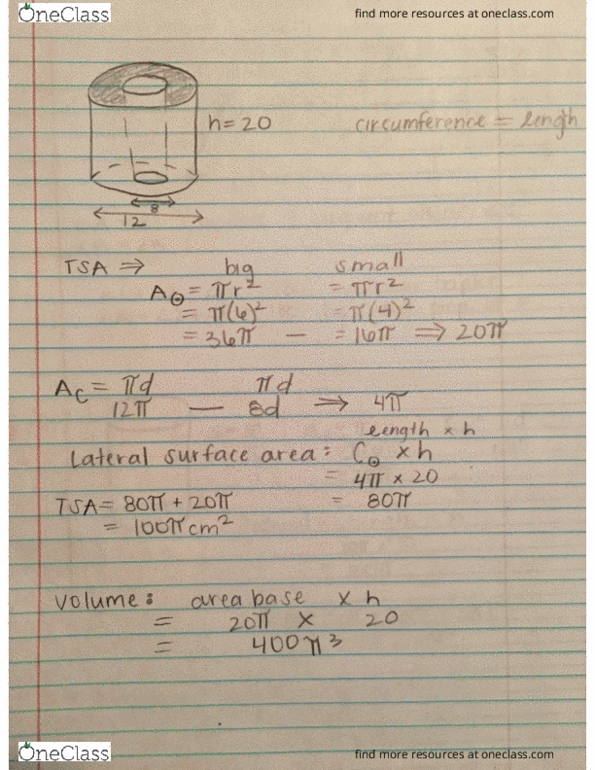 OneClass find more resources at oneclass.com
h=20 circumference = length
8
12
TSA ⇒ big small
A⊙ = πr² = πr²
= π(6)² = π(4)²
= 36π — = 16π ⇒ 20π
Ac = πd πd
12π — 8d ⇒ 4π
length x h
Lateral surface area: C⊙ x h
= 4π x 20
TSA = 80π + 20π = 80π
= 100π cm²
Volume: area base x h
= 20π x 20
= 400π³
OneClass find more resources at oneclass.com